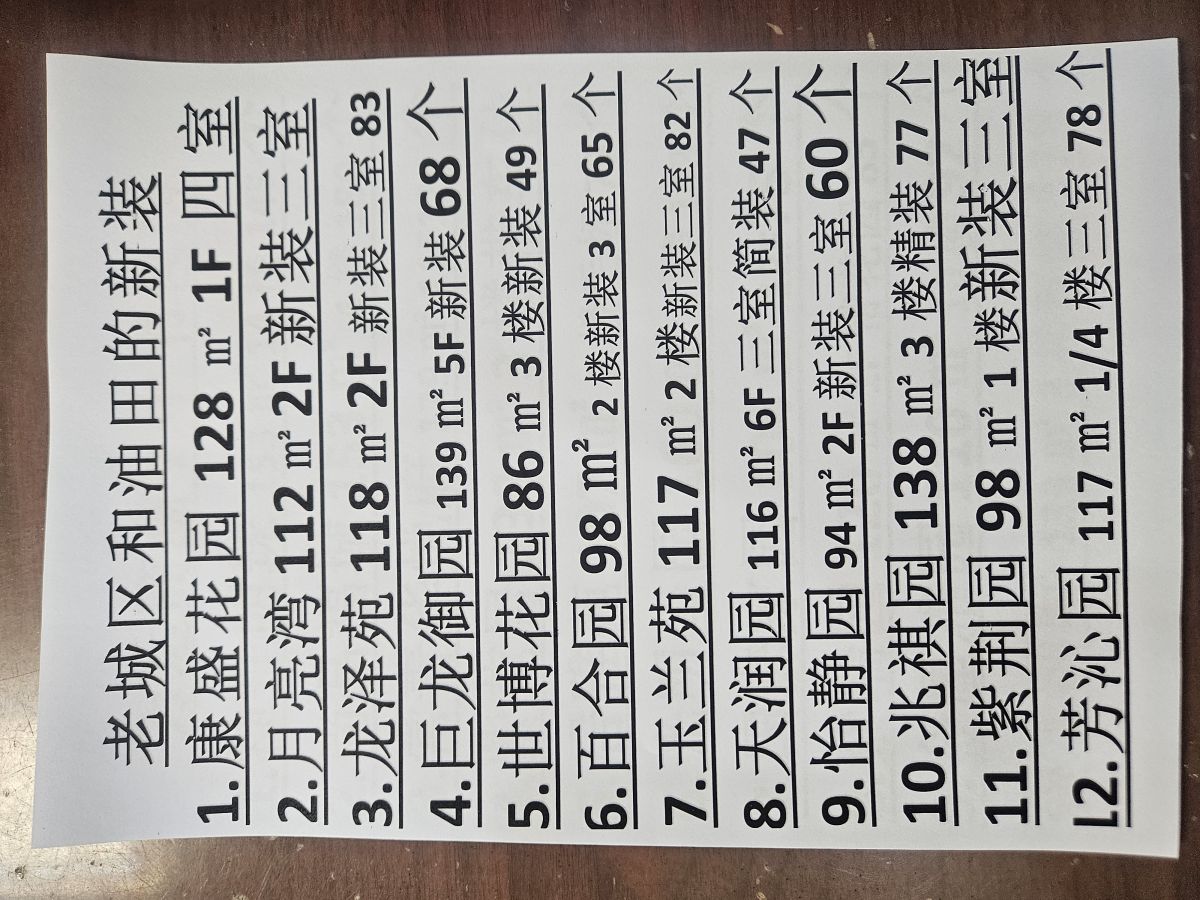 老城区和油田的新装
1.康盛花园 128 ㎡ 1F 四室
2.月亮湾 112 ㎡ 2F 新装三室
3.龙泽苑 118 ㎡ 2F 新装三室 83
4.巨龙御园 139 ㎡ 5F 新装 68 个
5.世博花园 86 ㎡ 3 楼新装 49 个
6.百合园 98 ㎡ 2 楼新装 3 室 65 个
7.玉兰苑 117 ㎡ 2 楼新装三室 82 个
8.天润园 116 ㎡ 6F 三室简装 47 个
9.怡静园 94 ㎡ 2F 新装三室 60 个
10.兆祺园 138 ㎡ 3 楼精装 77 个
11.紫荆园 98 ㎡ 1 楼新装三室
12.芳沁园 117 ㎡ 1/4 楼三室 78 个